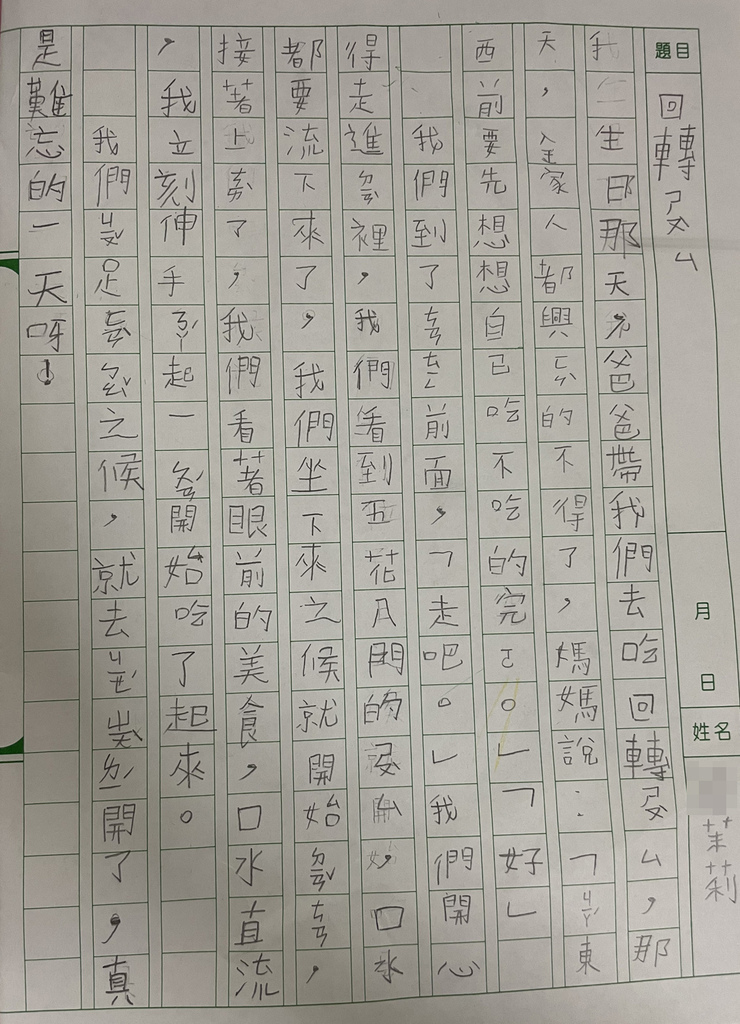 題目 回轉ㄕㄡˋㄙ
月 日
姓名 茉莉
我生日那天，爸爸帶我們去吃回轉ㄕㄡˋㄙ，那
天，全家人都興ㄈㄣˋ的不得了，媽媽說：「東
西前要先想想自己吃不吃的完ㄛ。」「好」
我們到了前面，「走吧。」我們開心
得走進裡，我們看到五花八門的ㄕㄡˋㄙ，口水
都要流下來了，我們坐下來之候就開始ㄉㄧㄢˇㄘㄢ，
接著上了，我們看著眼前的美食，口水直流
，我立刻伸手起一ㄆㄢˊ開始吃了起來。
我們足之候，就去ㄐㄧㄝˊㄓㄤˋㄌㄧˊ開了，真
是難忘的一天呀！